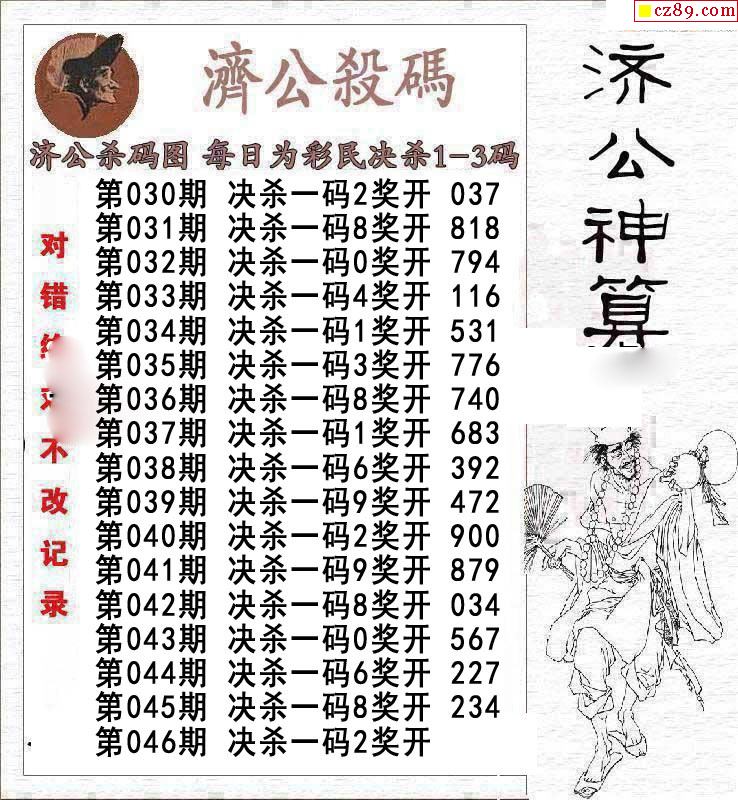 cz89.com
濟公殺碼
济公杀码图 每日为彩民决杀1-3码
第030期 决杀一码2奖开 037
第031期 决杀一码8奖开 818
第032期 决杀一码0奖开 794
第033期 决杀一码4奖开 116
第034期 决杀一码1奖开 531
第035期 决杀一码3奖开 776
第036期 决杀一码8奖开 740
第037期 决杀一码1奖开 683
第038期 决杀一码6奖开 392
第039期 决杀一码9奖开 472
第040期 决杀一码2奖开 900
第041期 决杀一码9奖开 879
第042期 决杀一码8奖开 034
第043期 决杀一码0奖开 567
第044期 决杀一码6奖开 227
第045期 决杀一码8奖开 234
第046期 决杀一码2奖开
对错不改记录
济公神算